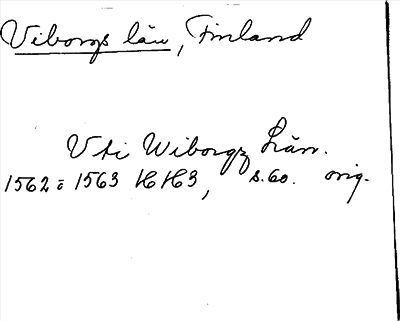 Viborgs län, Finland
Vti Wiborgz Län.
1562 = 1563 HH3, s. 60. orig.